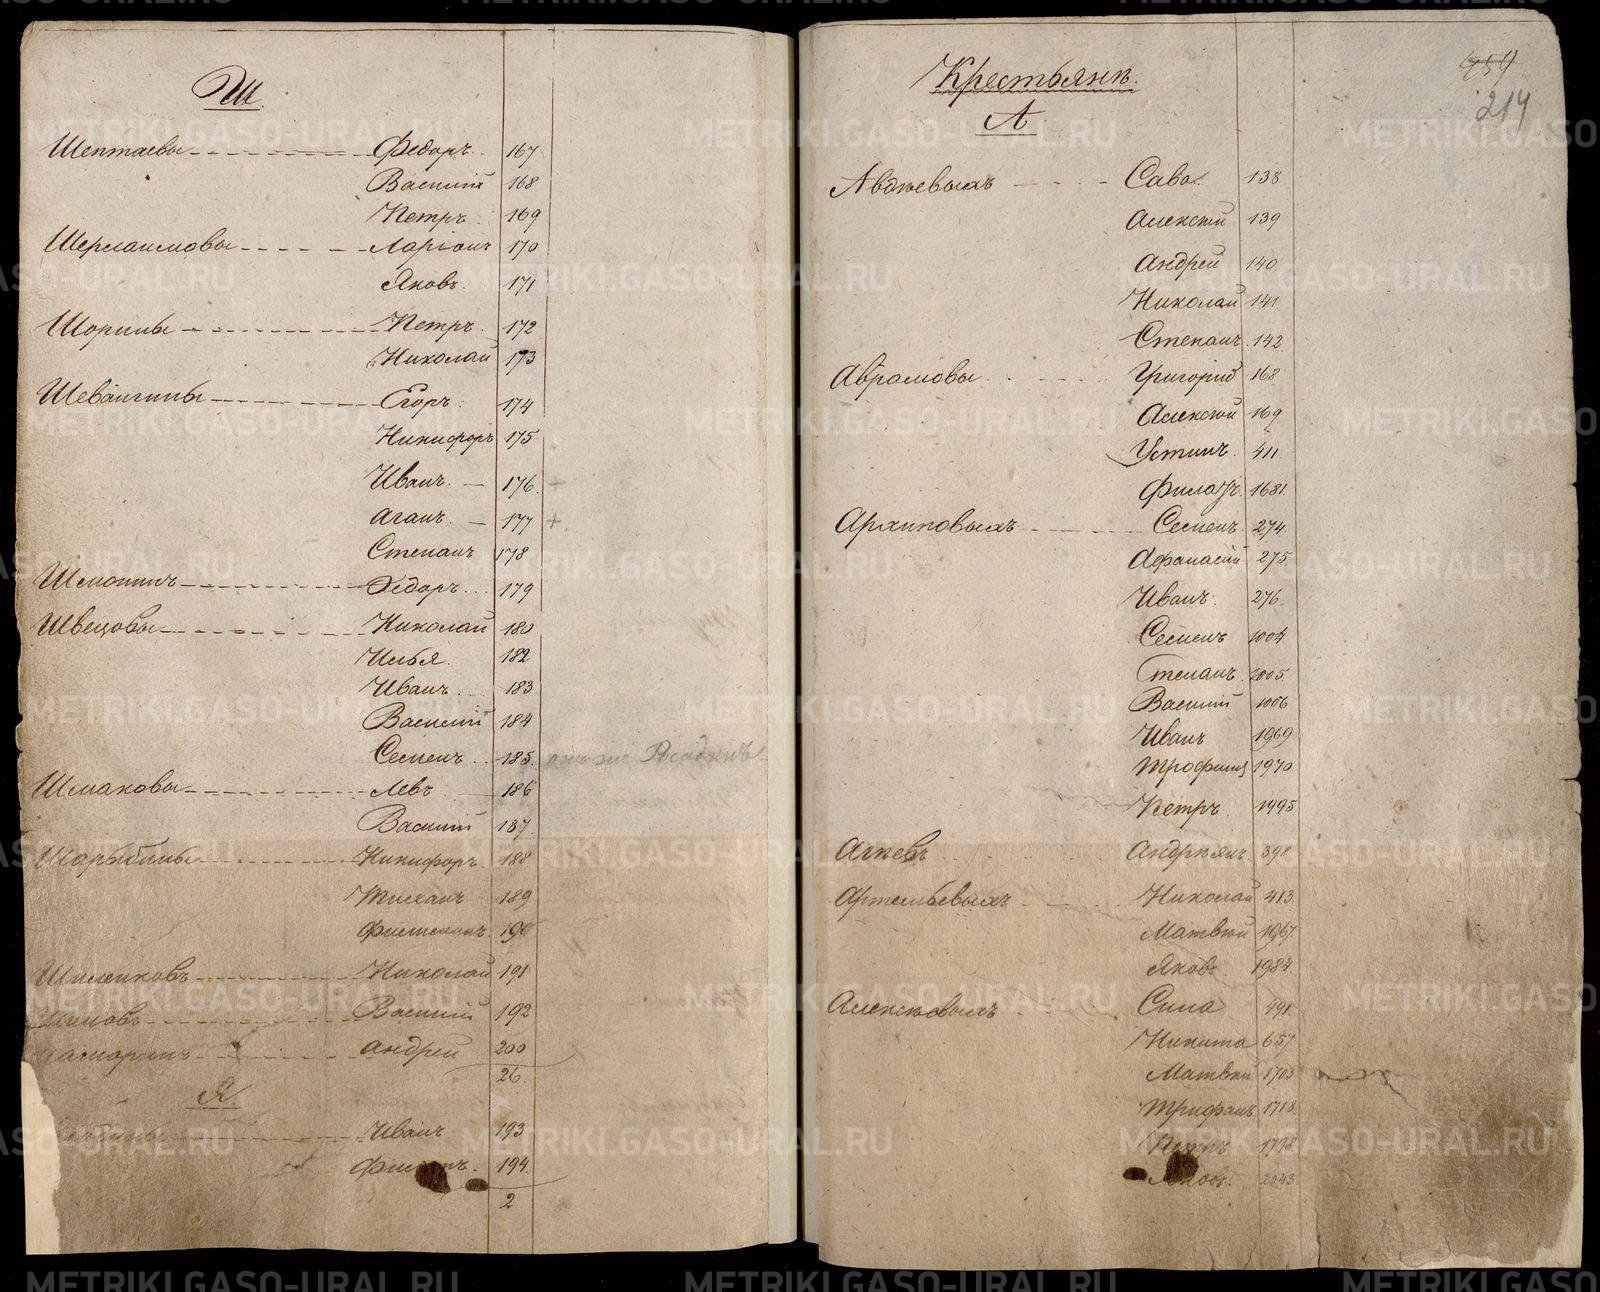 Ш.
Шептаевы Федоръ. 167
Василий 168
Петръ 169
Ларіонъ 170
Яковъ. 171
Шорины Петръ. 172
Николай 173
Егоръ. 174
Никифоръ 175
Иванъ. 176. +
Аганъ. 177 +
Степанъ 178
Федоръ. 179
Швецовы Николай 180
Илья. 182
Иванъ. 183
Василий 184
Семенъ. 185.
Шмаковы Левъ. 186
Василий 187.
Шарыбины Никифоръ. 188
189
190
Николай 191
Василий 192
Андрей 200
26.
Я.
Иванъ 193
194
2
Крестьянъ.
А
959
214
Авдѣевыхъ Сава. 138
Алексѣй 139
Андрей 140
Николай 141
Степанъ. 142
Аврамовы Григорий 168
Алексѣй 169
Устинъ. 411
Филатъ. 1681
Архиповыхъ Семенъ. 274
Афанасий 275
Иванъ. 276.
Семенъ 1004
Степанъ. 1005
Василий 1006
Иванъ 1969
Трофимъ 1970
Петръ. 1995
Агѣевъ Андреянъ. 398
Артемьевыхъ Николай 413
Матвѣй 1967
Яковъ. 1984
Алексѣевыхъ Сила 491
Никита 657
Матвѣй 1703
Трифанъ 1718
Петръ 1798
Яковъ. 2043
METRIKI.GASO-URAL.RU